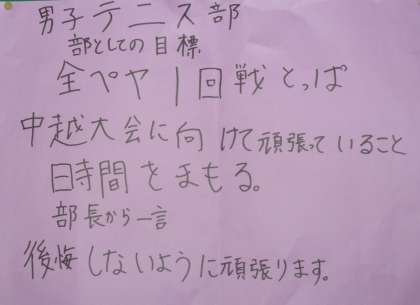 男子テニス部
部としての目標
全ペヤ1回戦とっぱ
中越大会に向けて頑張っていること
時間をまもる。
部長から一言
後悔しないように頑張ります。